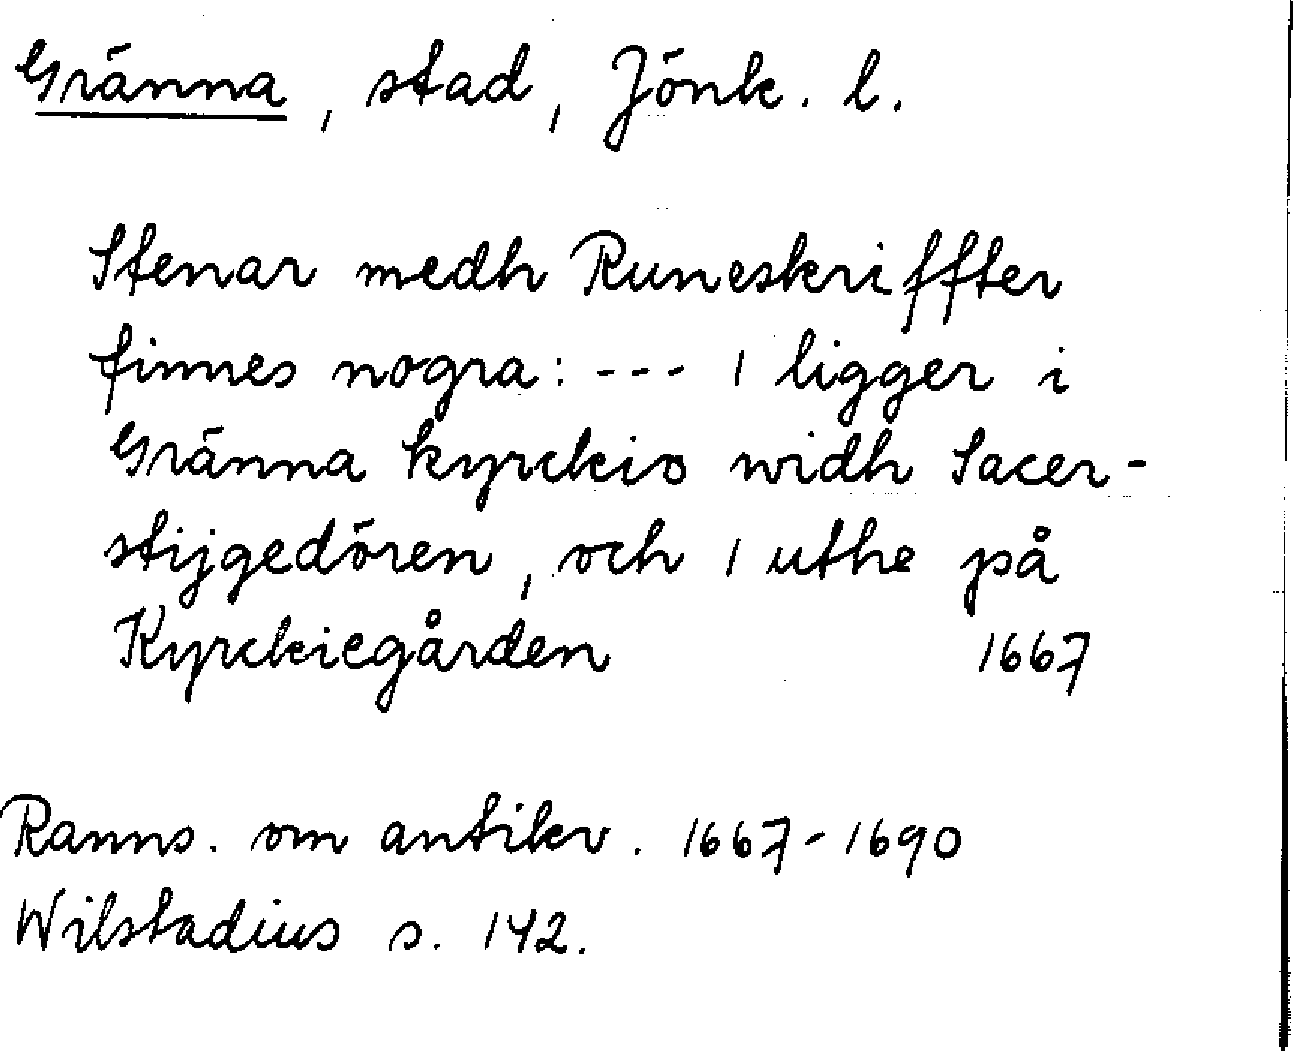 Gränna, stad, Jönk. l.
Stenar medh Runeskriffter
finnes nogra: --- 1 ligger i
Gränna kyrckio widh Sacer-
stijgedören, och 1 uthe på
Kyrckiegården 1667
Ranns. om antikv. 1667-1690
Wilstadius s. 142.